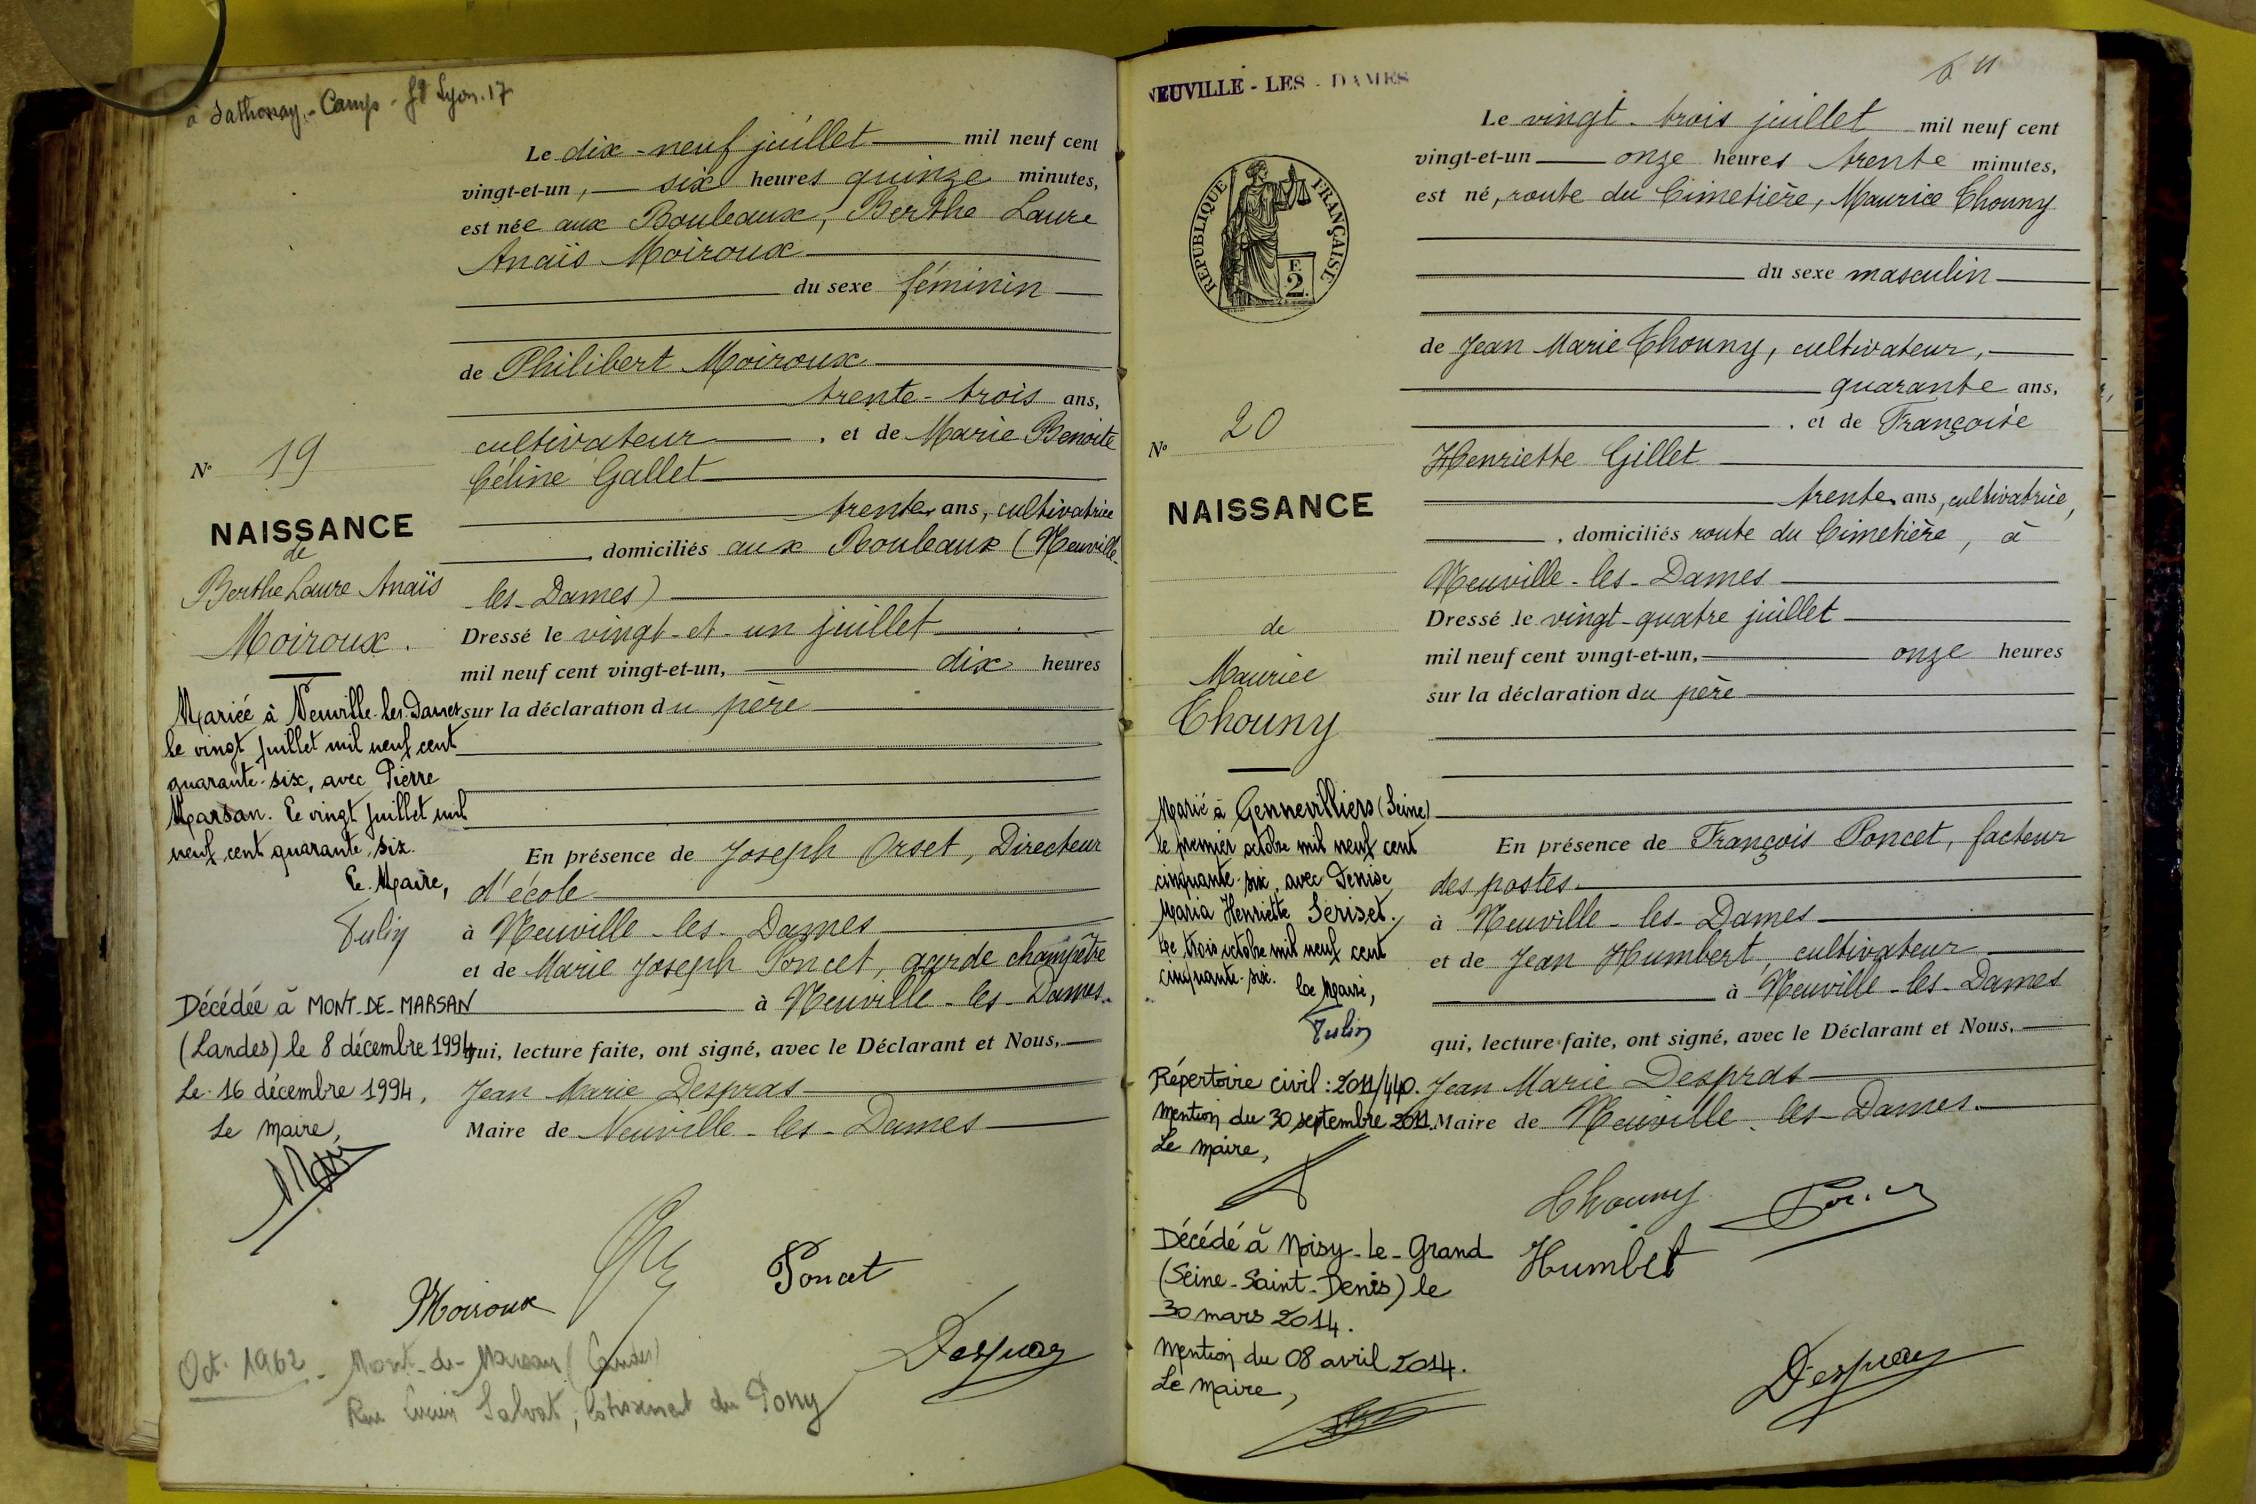 à Sathonay-Camp - Lyon. 17
Le dix-neuf juillet mil neuf cent
vingt-et-un, six heures quinze minutes,
est née aux Bouleaux, Berthe Laure
Anaïs Moiroux
du sexe féminin
de Philibert Moiroux
trente-trois ans,
cultivateur, et de Marie Benoite
Céline Gallet
trente ans, cultivatrice
, domiciliés aux Bouleaux (Neuville
-les-Dames)
Dressé le vingt-et-un juillet
mil neuf cent vingt-et-un, dix heures
sur la déclaration du père
En présence de Joseph Orset, Directeur
d'école
à Neuville-les-Dames
et de Marie Joseph Poncet, garde champêtre
à Neuville-les-Dames
qui, lecture faite, ont signé, avec le Déclarant et Nous,
Jean Marie Despras
Maire de Neuville-les-Dames
N° 19
NAISSANCE
de
Berthe Laure Anaïs
Moiroux.
Mariée à Neuville-les-Dames
le vingt juillet mil neuf cent
quarante-six, avec Pierre
Marsan. Le vingt juillet mil
neuf cent quarante-six.
Le Maire,
Tulin
Décédée à MONT-DE-MARSAN
(Landes) le 8 décembre 1994
Le 16 décembre 1994,
Le maire,
Moiroux
Poncet
Despras
Oct. 1962 - Mont-de-Marsan (Landes)
Rue Lucien Salvat, lotissement du Pony
NEUVILLE - LES - DAMES
RÉPUBLIQUE FRANÇAISE
F.
2.
Le vingt-trois juillet mil neuf cent
vingt-et-un onze heures trente minutes,
est né, route du Cimetière, Maurice Chouny
du sexe masculin
de Jean Marie Chouny, cultivateur,
quarante ans,
, et de Françoise
Henriette Gillet
trente ans, cultivatrice,
, domiciliés route du Cimetière, à
Neuville-les-Dames
Dressé le vingt-quatre juillet
mil neuf cent vingt-et-un, onze heures
sur la déclaration du père
En présence de François Poncet, facteur
des postes
à Neuville-les-Dames
et de Jean Humbert, cultivateur
à Neuville-les-Dames
qui, lecture faite, ont signé, avec le Déclarant et Nous,
Jean Marie Despras
Maire de Neuville-les-Dames.
N° 20
NAISSANCE
de
Maurice
Chouny
Marié à Gennevilliers (Seine)
le premier octobre mil neuf cent
cinquante-six, avec Denise
Maria Henriette Seriset.
Le trois octobre mil neuf cent
cinquante-six.
Le Maire,
Tulin
Répertoire civil : 2011/440.
mention du 30 septembre 2011.
Le maire,
Décédé à Noisy-Le-Grand
(Seine-Saint-Denis) le
30 mars 2014.
mention du 08 avril 2014.
Le maire,
Chouny
Humbert
Despras